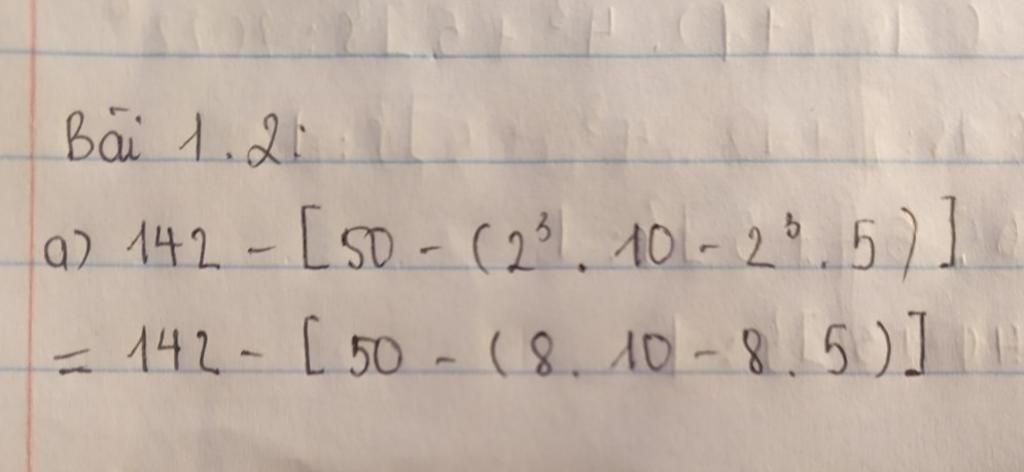 Bài 1.2:
a) 142 - [50 - (2³ . 10 - 2³ . 5)]
= 142 - [50 - (8 . 10 - 8 . 5)]